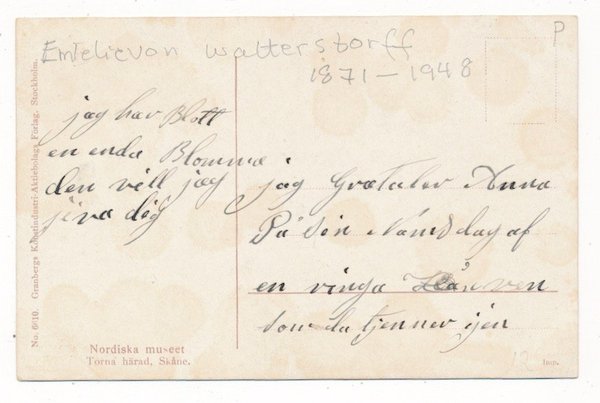 Emtelievon Walterstorff
1871 - 1948
P
jag har Blott
en enda Blomma
den vill jag
jiva dig
jag Gratuler Anna
På din Namsdag af
en ringa vän
som du tjenner ijen
No. 6610. Granbergs Konstindustri-Aktiebolags Förlag, Stockholm.
Nordiska museet
Torna härad, Skåne.
12
Imp.